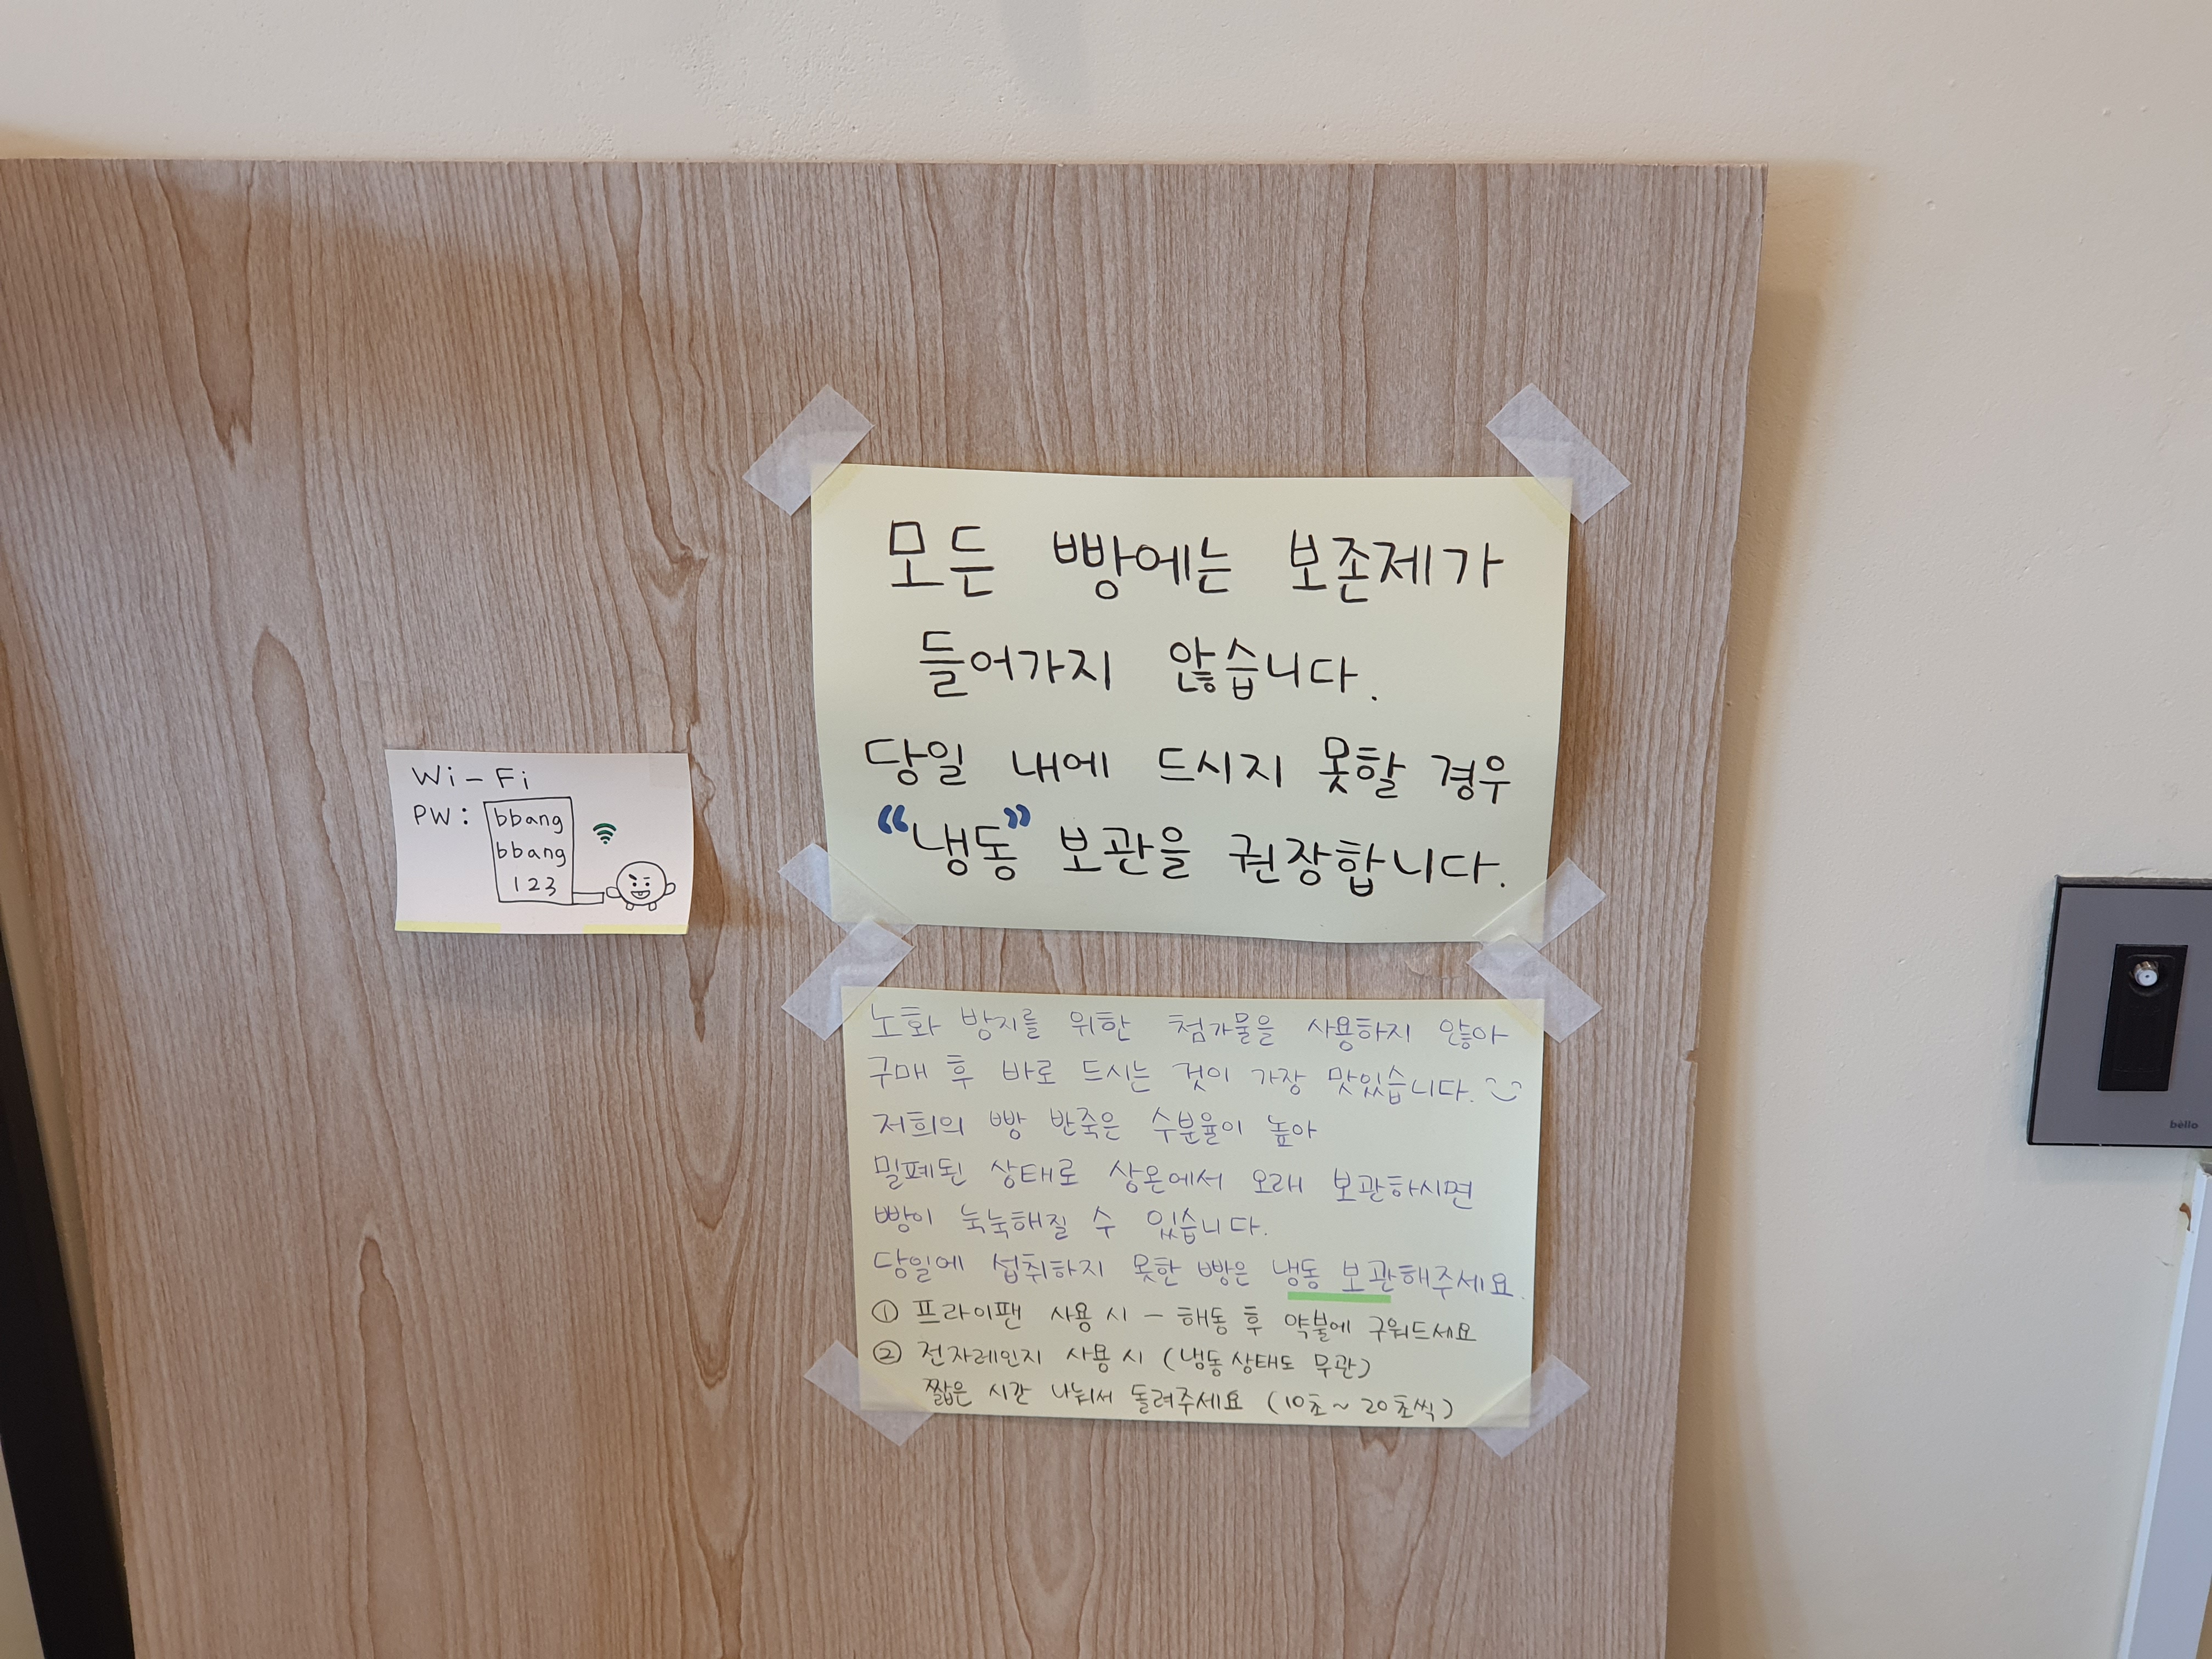 Wi-Fi
PW: bbang
bbang
123
모든 빵에는 보존제가
들어가지 않습니다.
당일 내에 드시지 못할 경우
“냉동” 보관을 권장합니다.
노화 방지를 위한 첨가물을 사용하지 않아
구매 후 바로 드시는 것이 가장 맛있습니다.
저희의 빵 반죽은 수분율이 높아
밀폐된 상태로 상온에서 오래 보관하시면
빵이 눅눅해질 수 있습니다.
당일에 섭취하지 못한 빵은 냉동 보관해주세요.
① 프라이팬 사용 시 - 해동 후 약불에 구워드세요
② 전자레인지 사용 시 (냉동상태도 무관)
짧은 시간 나눠서 돌려주세요 (10초~20초씩)
bello